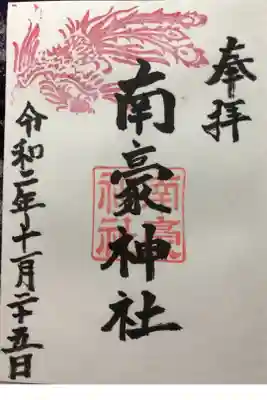 奉拝
南豪神社
令和二年十一月二十五日
南豪
神社